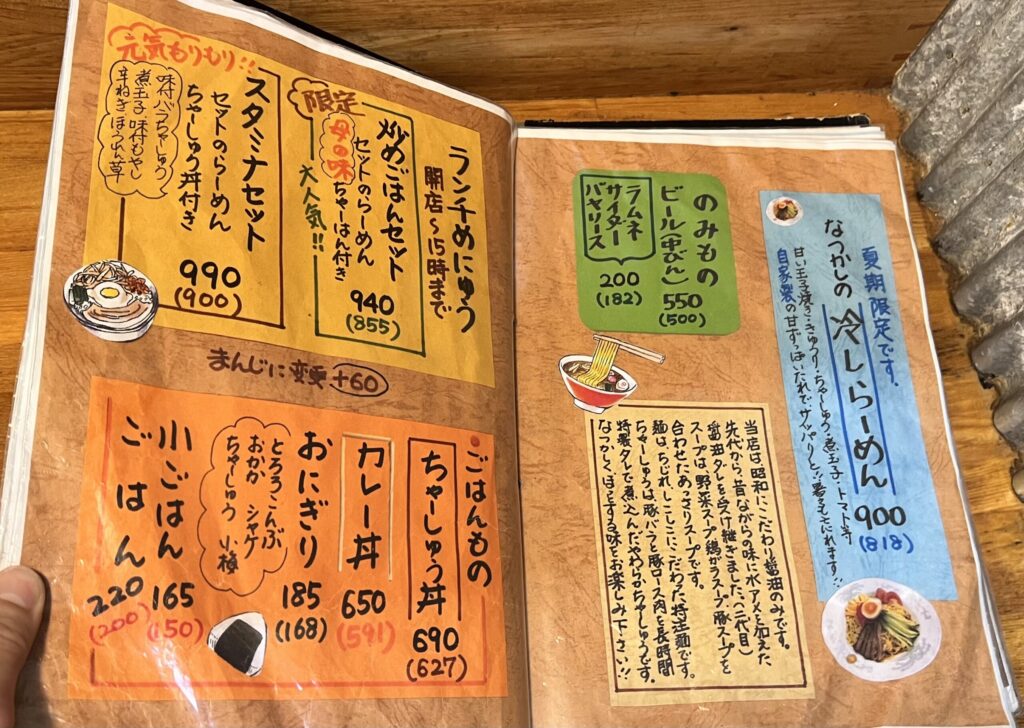 夏期限定です。
なつかしの
冷しらーめん
900
(818)
甘い玉子焼き・きゅうり・ちゃーしゅう・煮玉子・トマト等
自家製の甘ずっぱいたれで、サッパリと!!
のみもの
ビール(中びん)
550
(500)
ラムネ
サイダー
バヤリース
200
(182)
当店は昭和にこだわり醤油のみです。
先代から、昔ながらの味に水アメを加えた
醤油タレを受け継ぎました。(二代目)
スープは野菜スープ鶏がらスープ豚スープを
合わせたあっさりスープです。
麺は、ちぢれしこしこにこだわった特注麺です。
ちゃーしゅうは豚バラと豚ロース肉を長時間
特製タレで煮込んだやわらかちゃーしゅうです。
なつかしくほっとする味をお楽しみ下さい!!
ランチめにゅう
開店〜15時まで
限定
炒めごはんセット
セットのらーめん
ちゃーはん付き
母の味
大人気!!
940
(855)
元気もりもり!!
スタミナセット
セットのらーめん
ちゃーしゅう丼付き
味付バラちゃーしゅう
煮玉子 味付もやし
辛ねぎ ほうれん草
990
(900)
まんじに変更 +60
ごはんもの
ちゃーしゅう丼
690
(627)
カレー丼
650
(591)
おにぎり
185
(168)
とろろこんぶ
おかか シャケ
ちゃーしゅう 小梅
小ごはん
165
(150)
ごはん
220
(200)